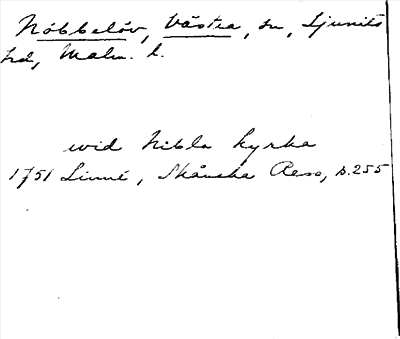 Nöbbelöv, Västra, sn, Ljunits
hd, Malm. l.
wid Nibla kyrka
1751 Linné, Skånska Resa, s. 255